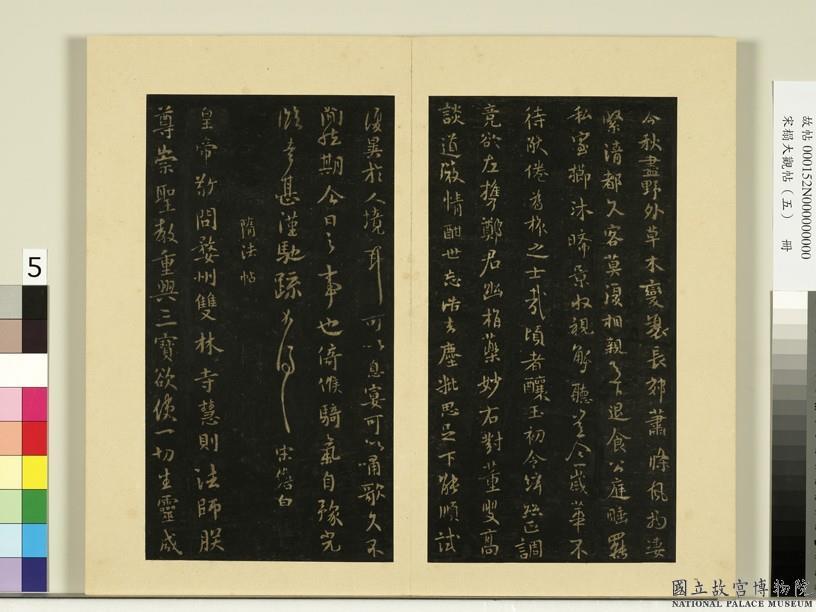 今秋盡野外草木變衰長郊蕭條風物淒
緊清都久客莫復相親足下退食公庭睡覺
私室櫛沐晞景收視解聽豈令歲華不
待耿倦若棲之士哉頃者釀玉初令絃
調
竟欲左攜鄭君幽栢藥妙右對董叟高
談道散情酣世忘浩玄塵批思足下能順試
復異於人境耳可以息宴可以嘯歌久不
期今日之事也倚候騎氣自豫完
甚謹馳疏
宋儋白
隋法帖
皇帝敬問婺州雙林寺慧則法師朕
尊崇聖教重興三寶欲使一切生靈咸
5
故帖 000152N000000000
宋搨大觀帖(五) 冊
國立故宮博物院
NATIONAL PALACE MUSEUM